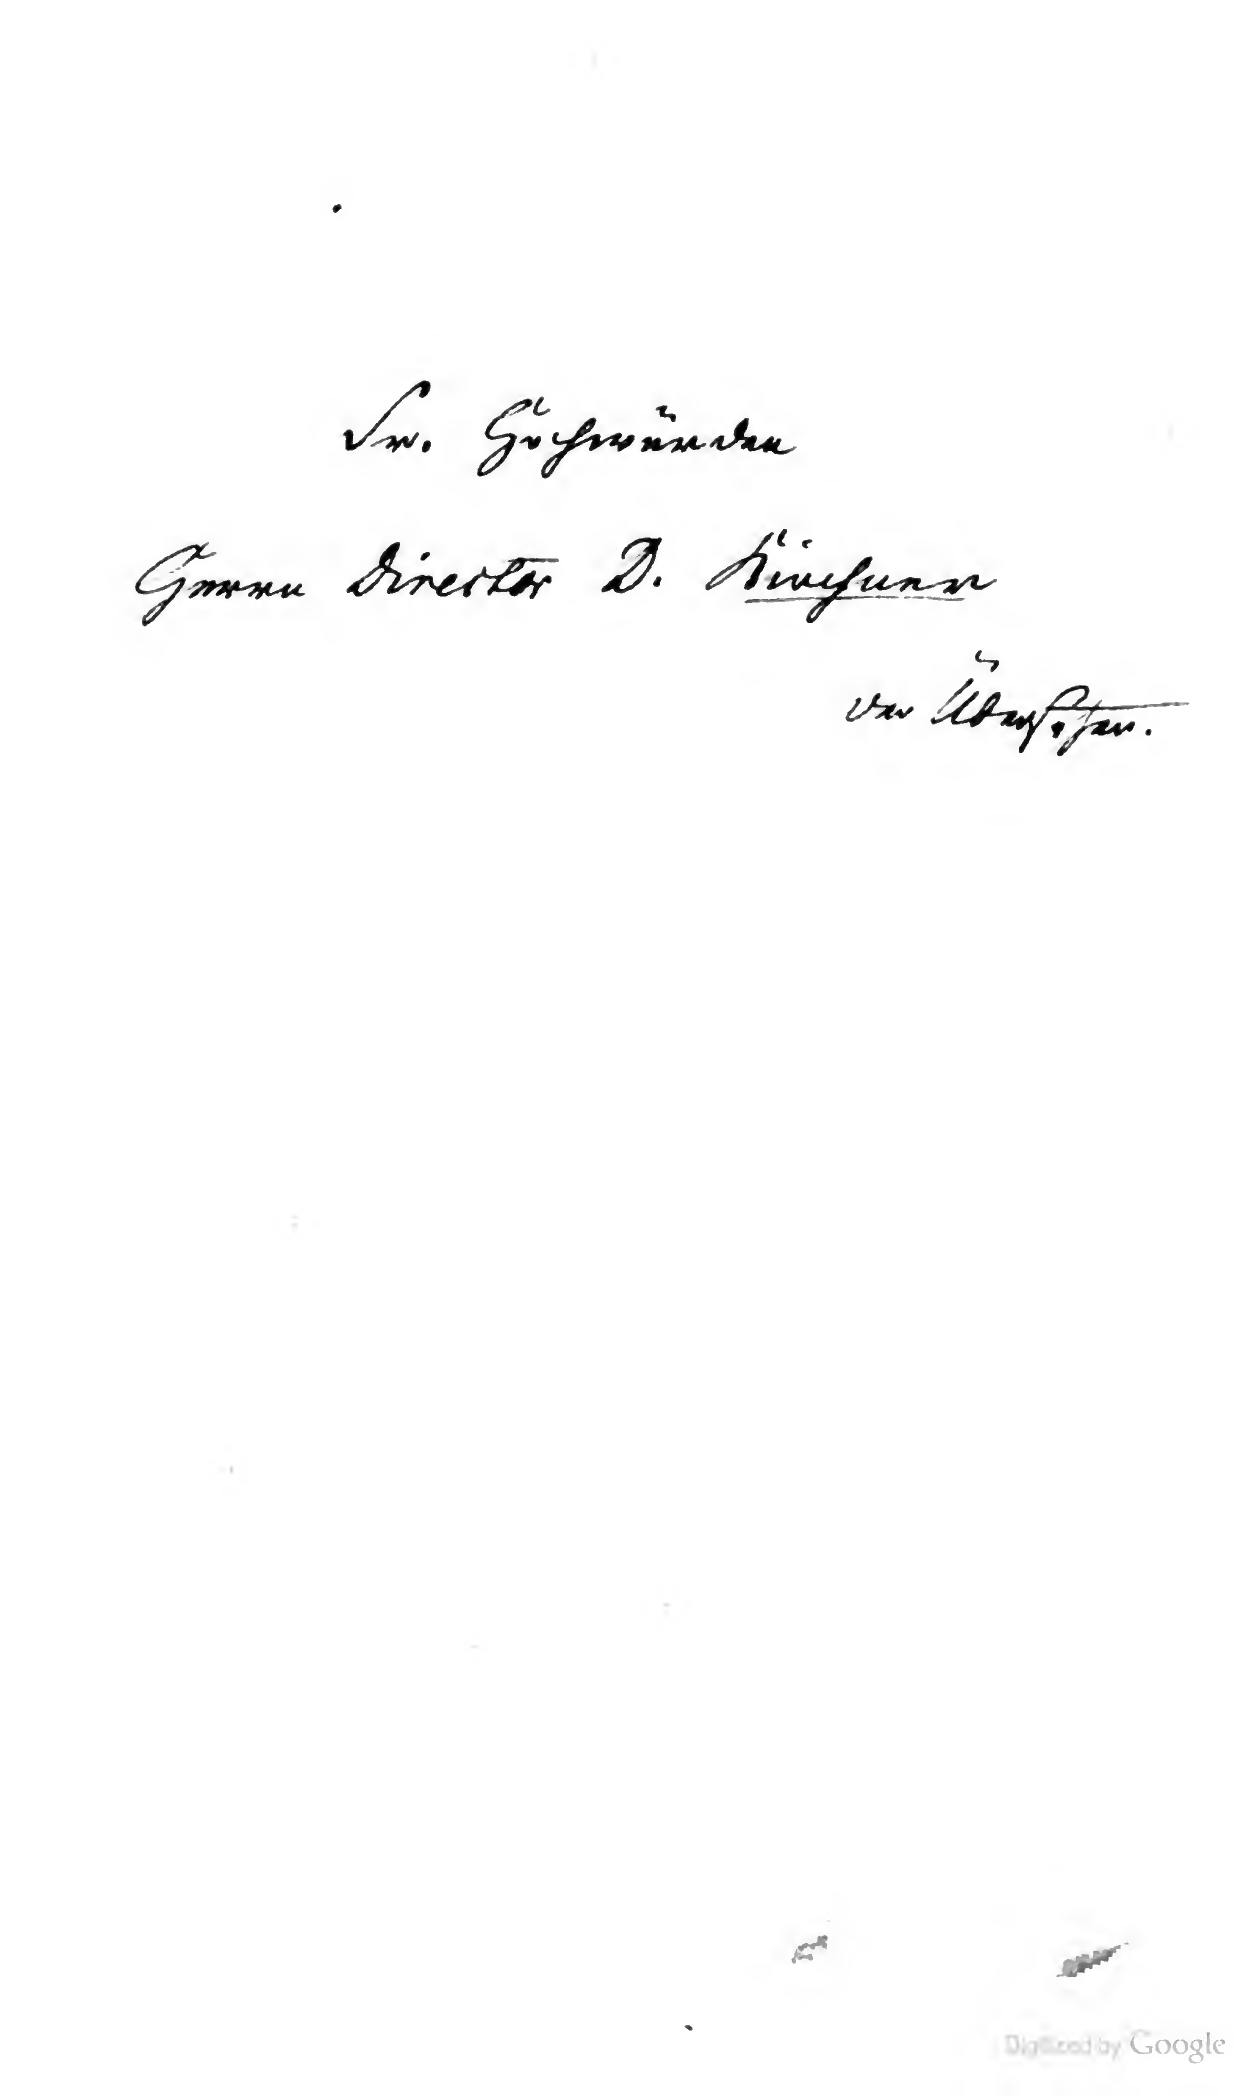 Sr. Hochwürden
Herrn Director D. Kirchner
der Übersetzer.
Digitized by Google